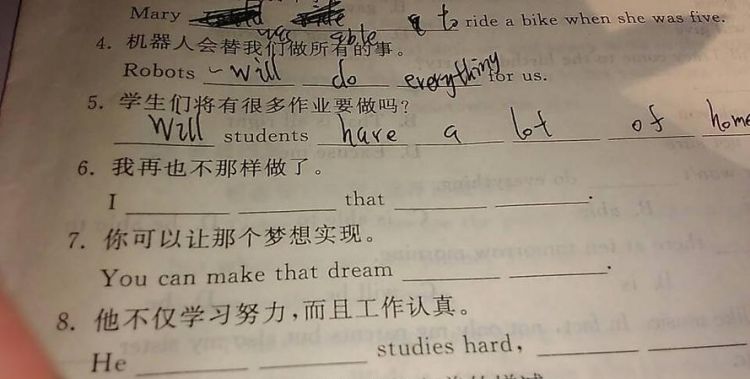 Mary was able to ride a bike when she was five.
4. 机器人会替我们做所有的事。
Robots will do everything for us.
5. 学生们将有很多作业要做吗?
Will students have a lot of home
6. 我再也不那样做了。
I ______ ______ that ______ ______.
7. 你可以让那个梦想实现。
You can make that dream ______ ______.
8. 他不仅学习努力,而且工作认真。
He ______ ______ studies hard, ______ ______